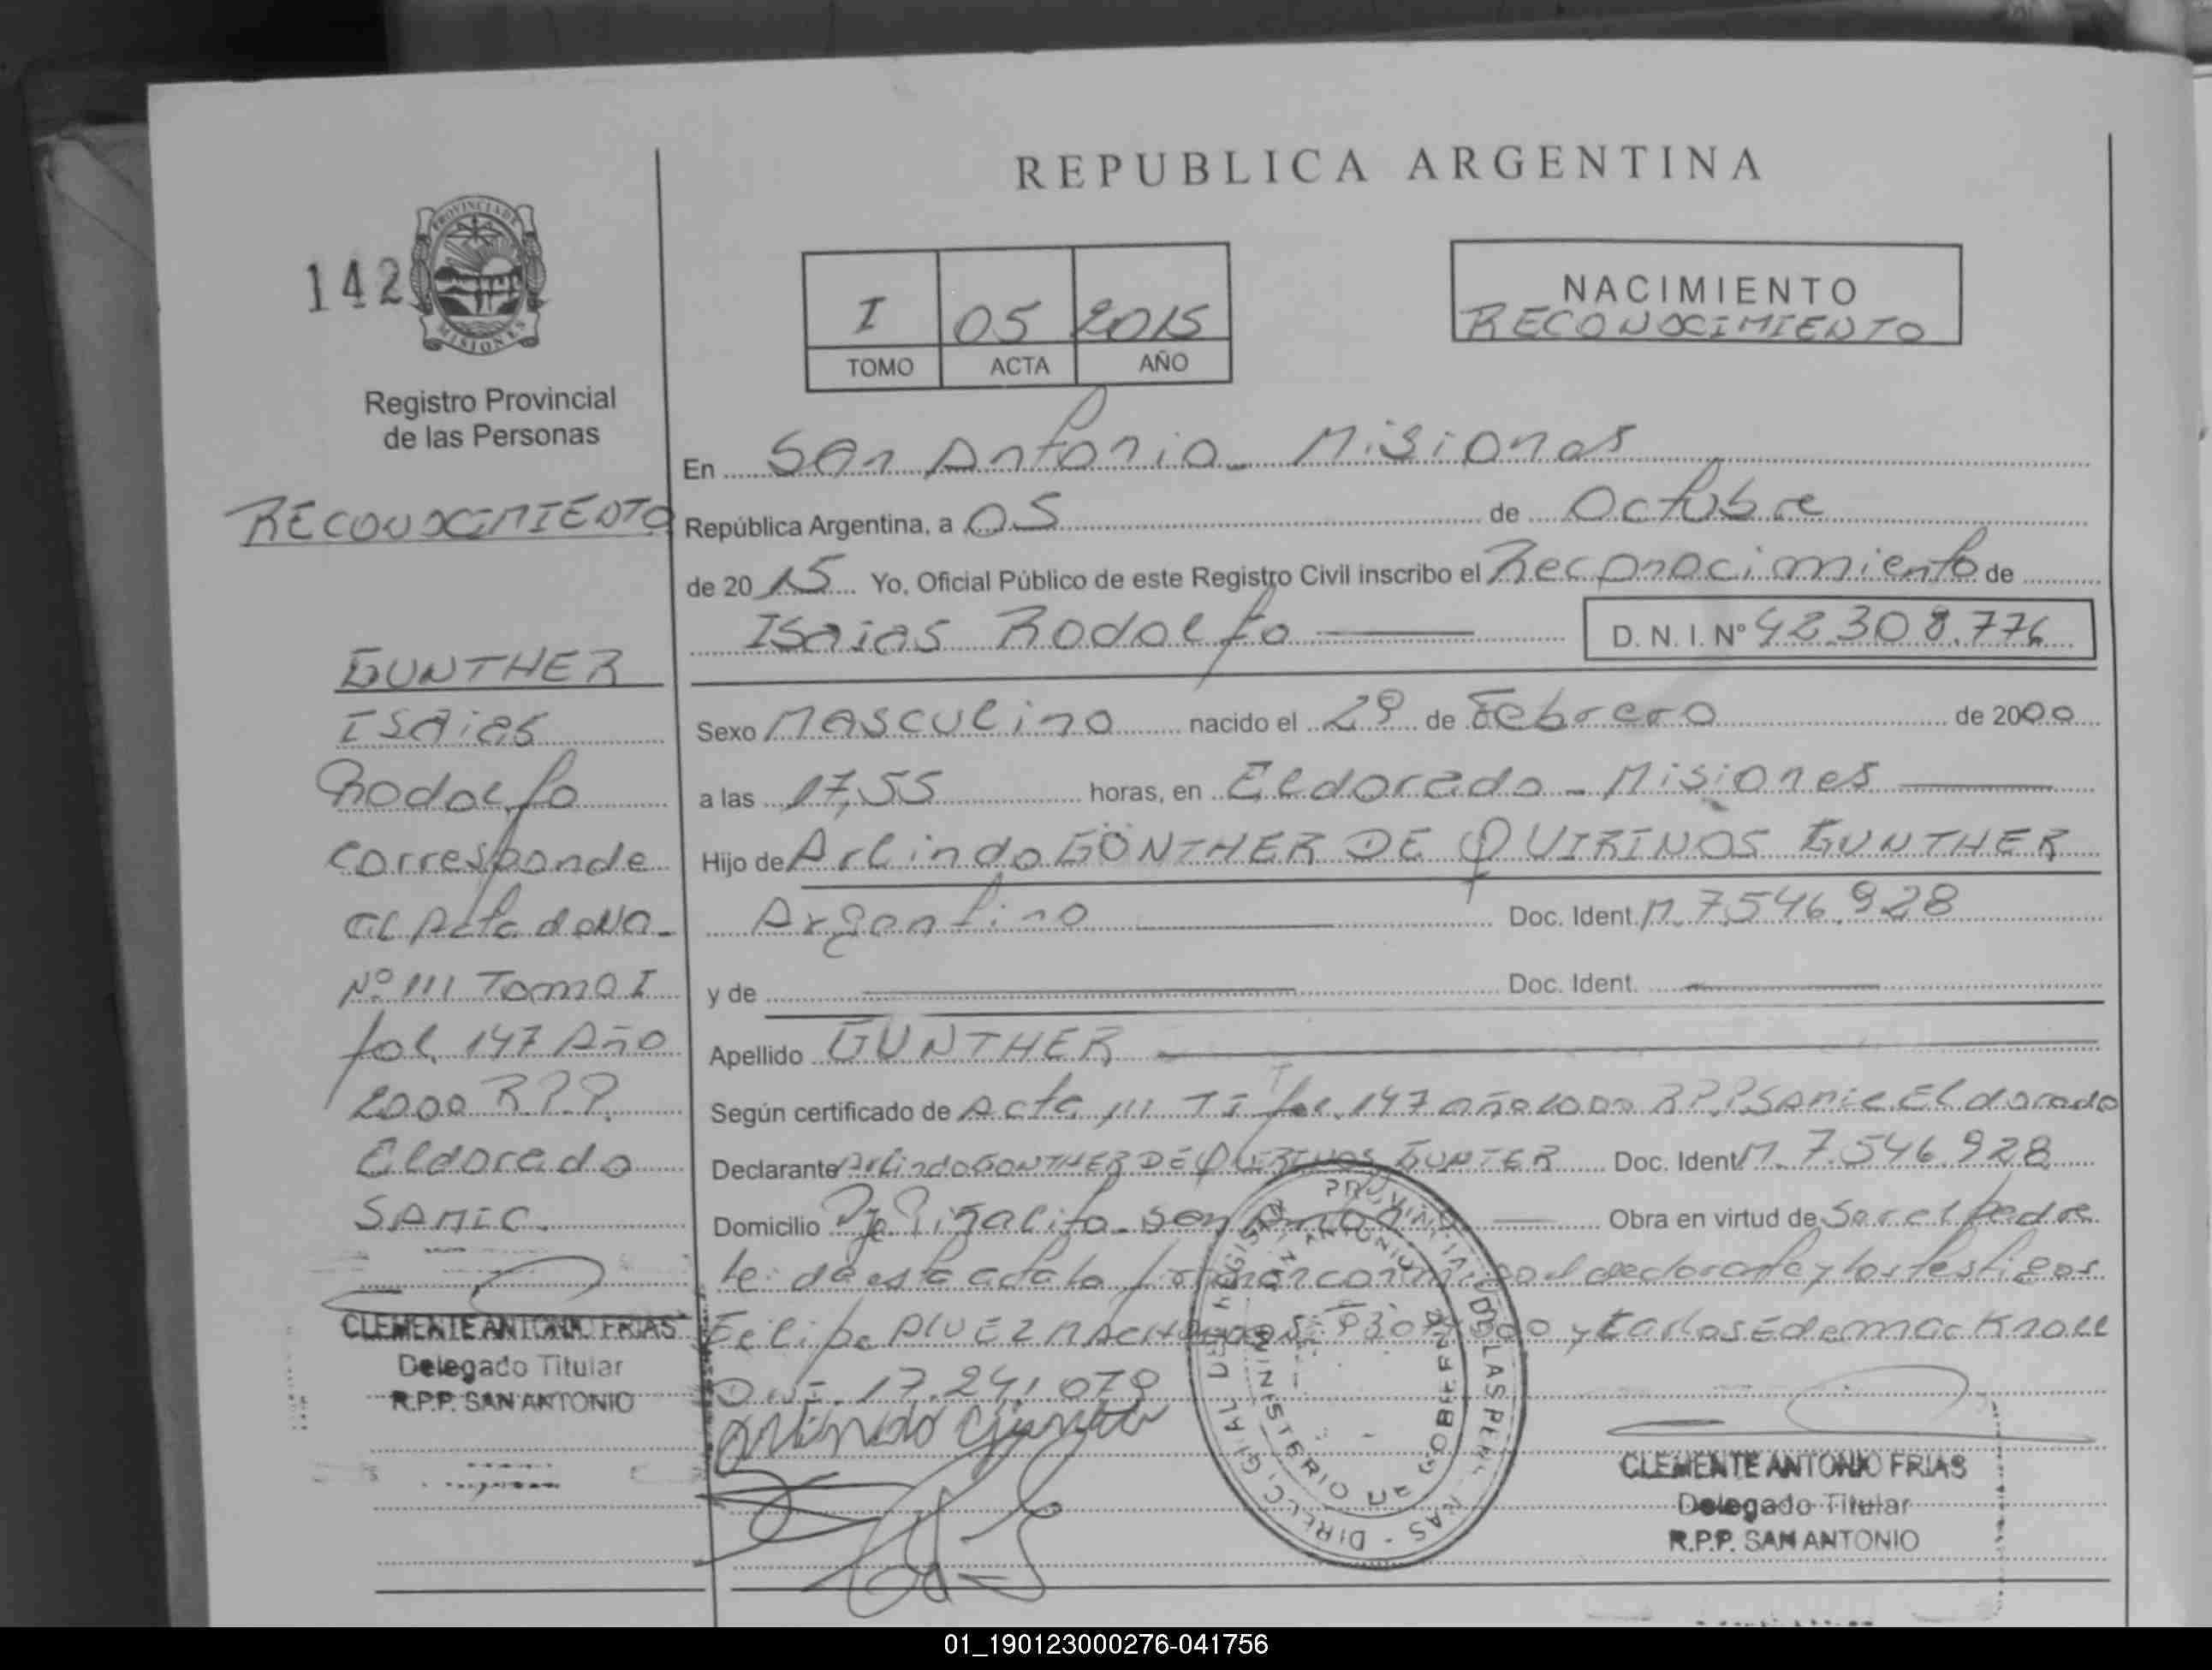 REPUBLICA ARGENTINA
142
PROVINCIA DE
MISIONES
Registro Provincial
de las Personas
I 05 2015
TOMO ACTA AÑO
NACIMIENTO
RECONOCIMIENTO
RECONOCIMIENTO
GUNTHER
Isaias
Rodolfo
corresponde
al Acta de Na.
Nº 111 Tomo I
fol. 147 Año
2000 R.P.P.
Eldorado
SAMIC.
CLEMENTE ANTONIO FRIAS
Delegado Titular
R.P.P. SAN ANTONIO
En San Antonio - Misiones
República Argentina, a 05 de Octubre
de 2015 Yo, Oficial Público de este Registro Civil inscribo el Reconocimiento de
Isaias Rodolfo D. N. I. Nº 42.308.776
Sexo Masculino nacido el 29 de Febrero de 2000
a las 17,55 horas, en Eldorado - Misiones
Hijo de Arlindo GÖNTHER DE QUIRINOS GUNTHER
Argentino Doc. Ident. M. 7.546.928
y de Doc. Ident.
Apellido GUNTHER
Según certificado de Acta 111 T I fol. 147 año 2000 R.P.P. Samic Eldorado
Declarante Arlindo GONTHER DE QUIRINOS GUNTER Doc. Ident M. 7.546.928
Domicilio Pje Piñalito - San Antonio Obra en virtud de Ser el padre
Leida esta acta la firman conmigo el declarante y los testigos
Felipe y Carlos Edemar Knoll
D.N.I. 17.241.079
Arlindo
CLEMENTE ANTONIO FRIAS
Delegado Titular
R.P.P. SAN ANTONIO
01_190123000276-041756